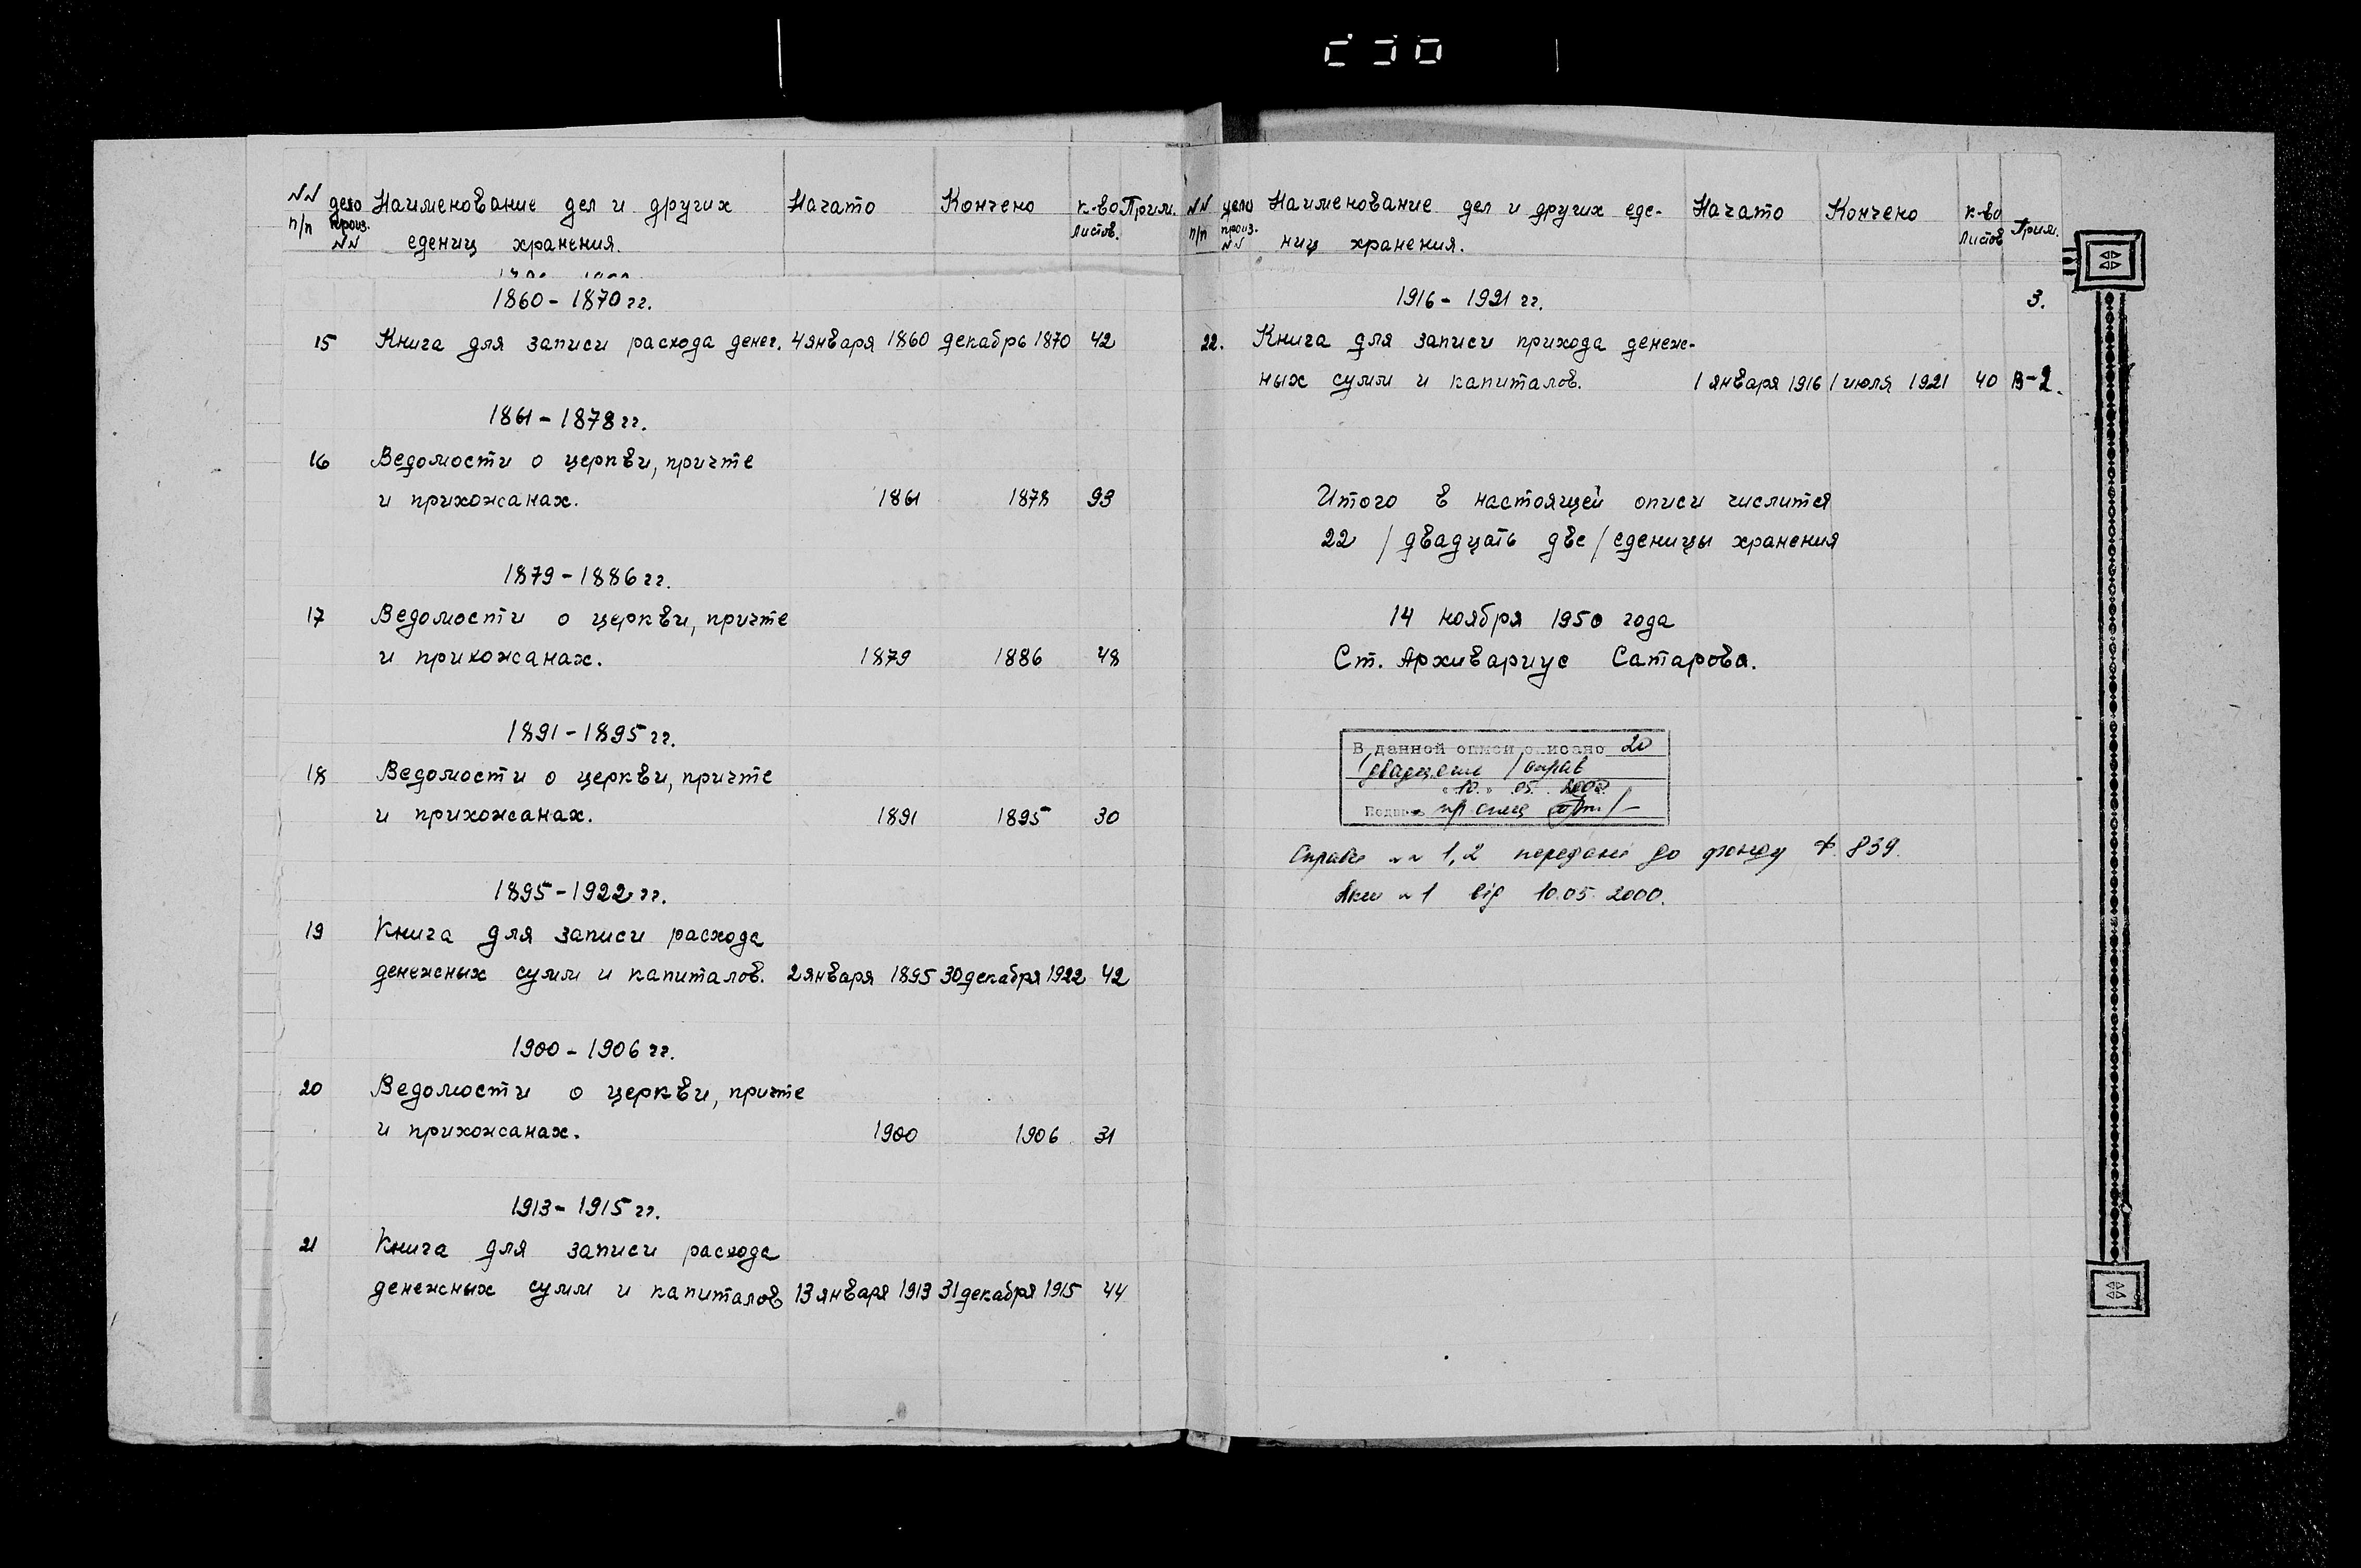 NN п/п дело произ. NN Наименование дел и других едениц хранения. Начато Кончено к-во листов. Прим.
1860 - 1870 гг.
15 Книга для записи расхода денег. 4 января 1860 декабрь 1870 42
1861 - 1878 гг.
16 Ведомости о церкви, причте
и прихожанах. 1861 1878 93
1879 - 1886 гг.
17 Ведомости о церкви, причте
и прихожанах. 1879 1886 48
1891 - 1895 гг.
18 Ведомости о церкви, причте
и прихожанах. 1891 1895 30
1895 - 1922 гг.
19 Книга для записи расхода
денежных сумм и капиталов. 2 января 1895 30 декабря 1922 42
1900 - 1906 гг.
20 Ведомости о церкви, причте
и прихожанах. 1900 1906 31
1913 - 1915 гг.
21 Книга для записи расхода
денежных сумм и капиталов 13 января 1913 31 декабря 1915 44
NN п/п дело произ. NN Наименование дел и других еде-
ниц хранения. Начато Кончено к-во листов Прим.
1916 - 1921 гг. 3.
22. Книга для записи прихода денеж-
ных сумм и капиталов. 1 января 1916 1 июля 1921 40 В-2.
Итого в настоящей описи числится
22 /двадцать две/ еденицы хранения
14 ноября 1950 года
Ст. Архивариус Сатарова.
В данной описи описано 20
/двадцать/ справ
"10" 05. 2000
Подпись
Справи NN 1, 2 передані до фонду Ф. 839.
Акт N 1 від 10.05.2000.